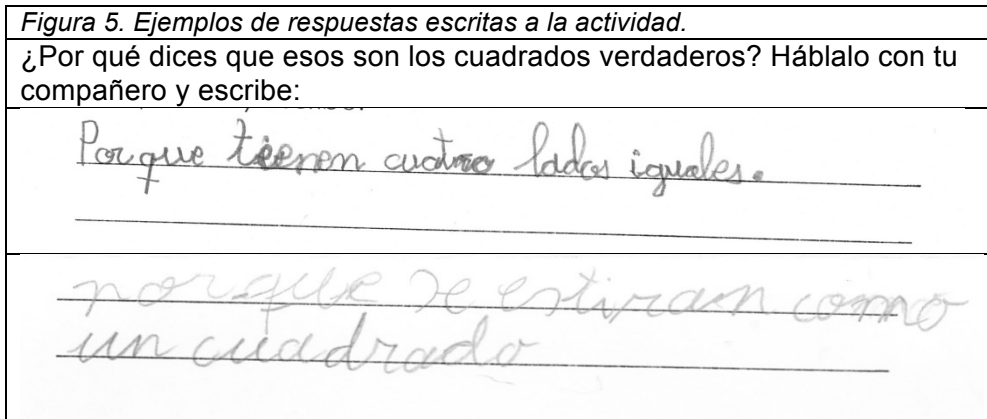 Figura 5. Ejemplos de respuestas escritas a la actividad.
¿Por qué dices que esos son los cuadrados verdaderos? Háblalo con tu
compañero y escribe:
Porque tienen cuatro lados iguales.
porque se estiran como
un cuadrado